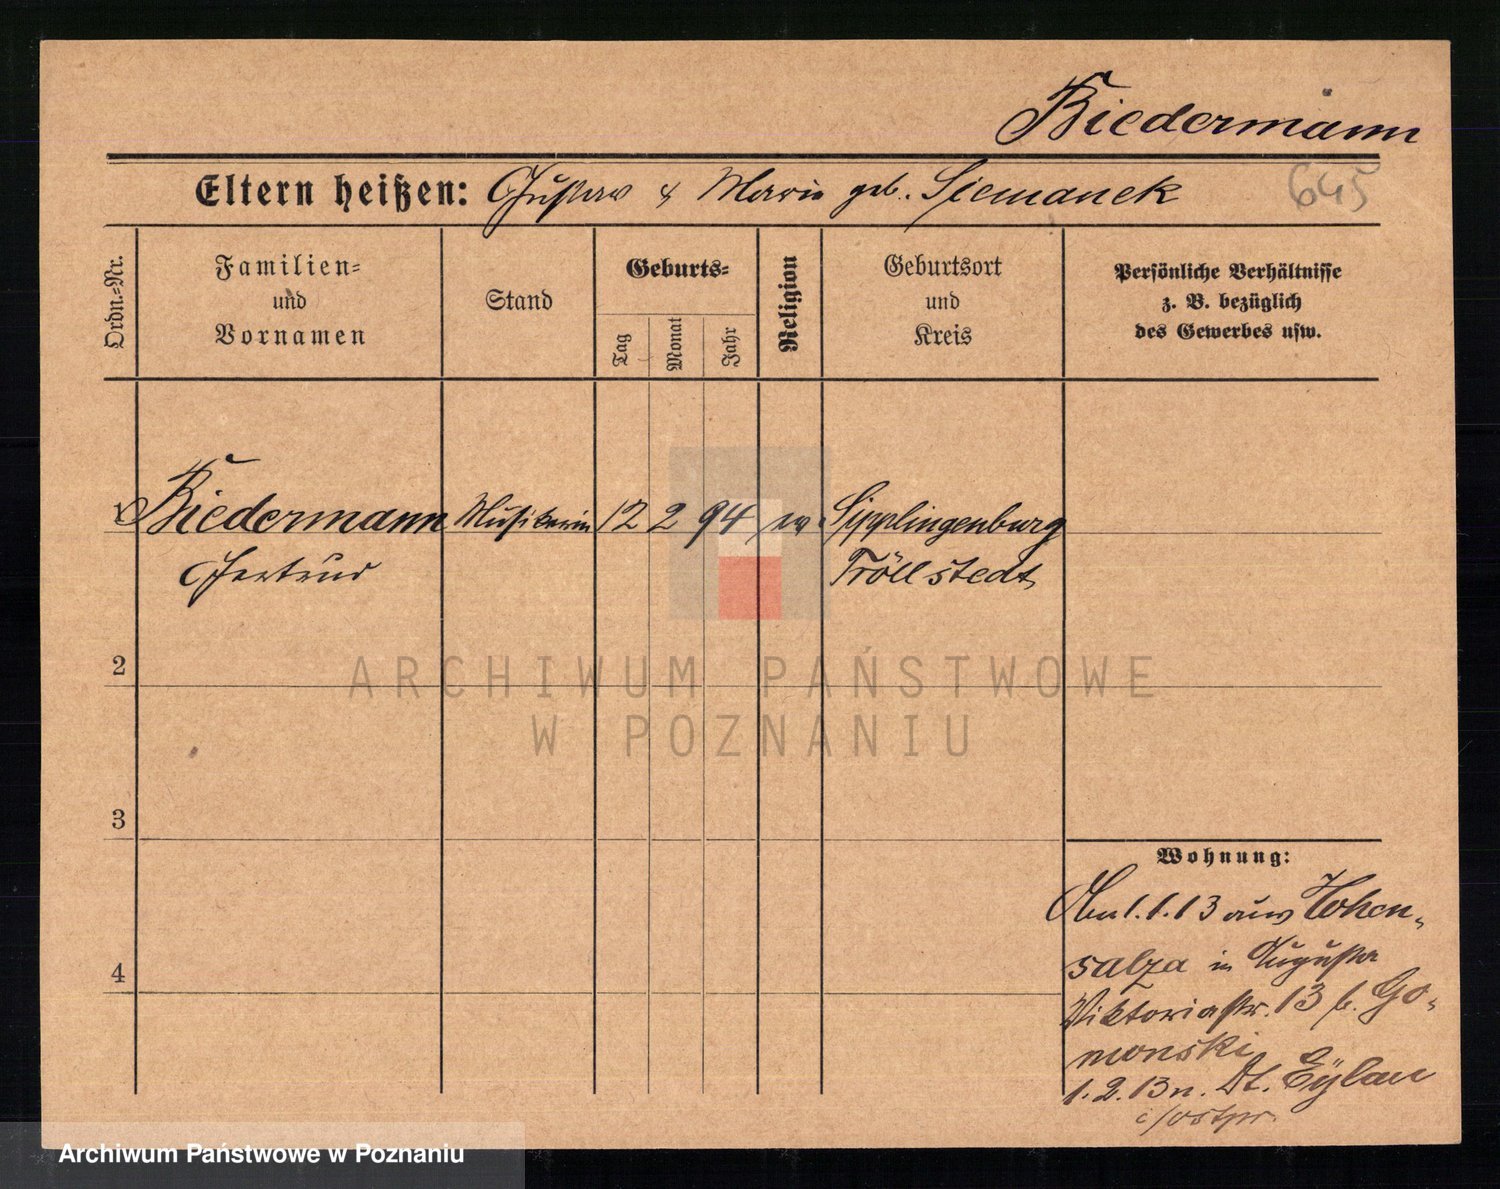 Biedermann
Eltern heißen: Gustav & Marie geb. Siemanek
645
Ordn.-Nr.
Familien-
und
Vornamen
Stand
Geburts-
Tag
Monat
Jahr
Religion
Geburtsort
und
Kreis
Persönliche Verhältnisse
z. B. bezüglich
des Gewerbes usw.
1 Biedermann Musikerin 12 2 94 ev Sipplingenburg
Gertrud Tröllstedt
2
3
4
Wohnung:
Am 1.1.13 aus Hohen-
salza in Augusta
Viktoriastr. 13 b. Go-
monski
1.2.13 n. Dt. Eylau
i/Ostpr.
ARCHIWUM PAŃSTWOWE
W POZNANIU
Archiwum Państwowe w Poznaniu